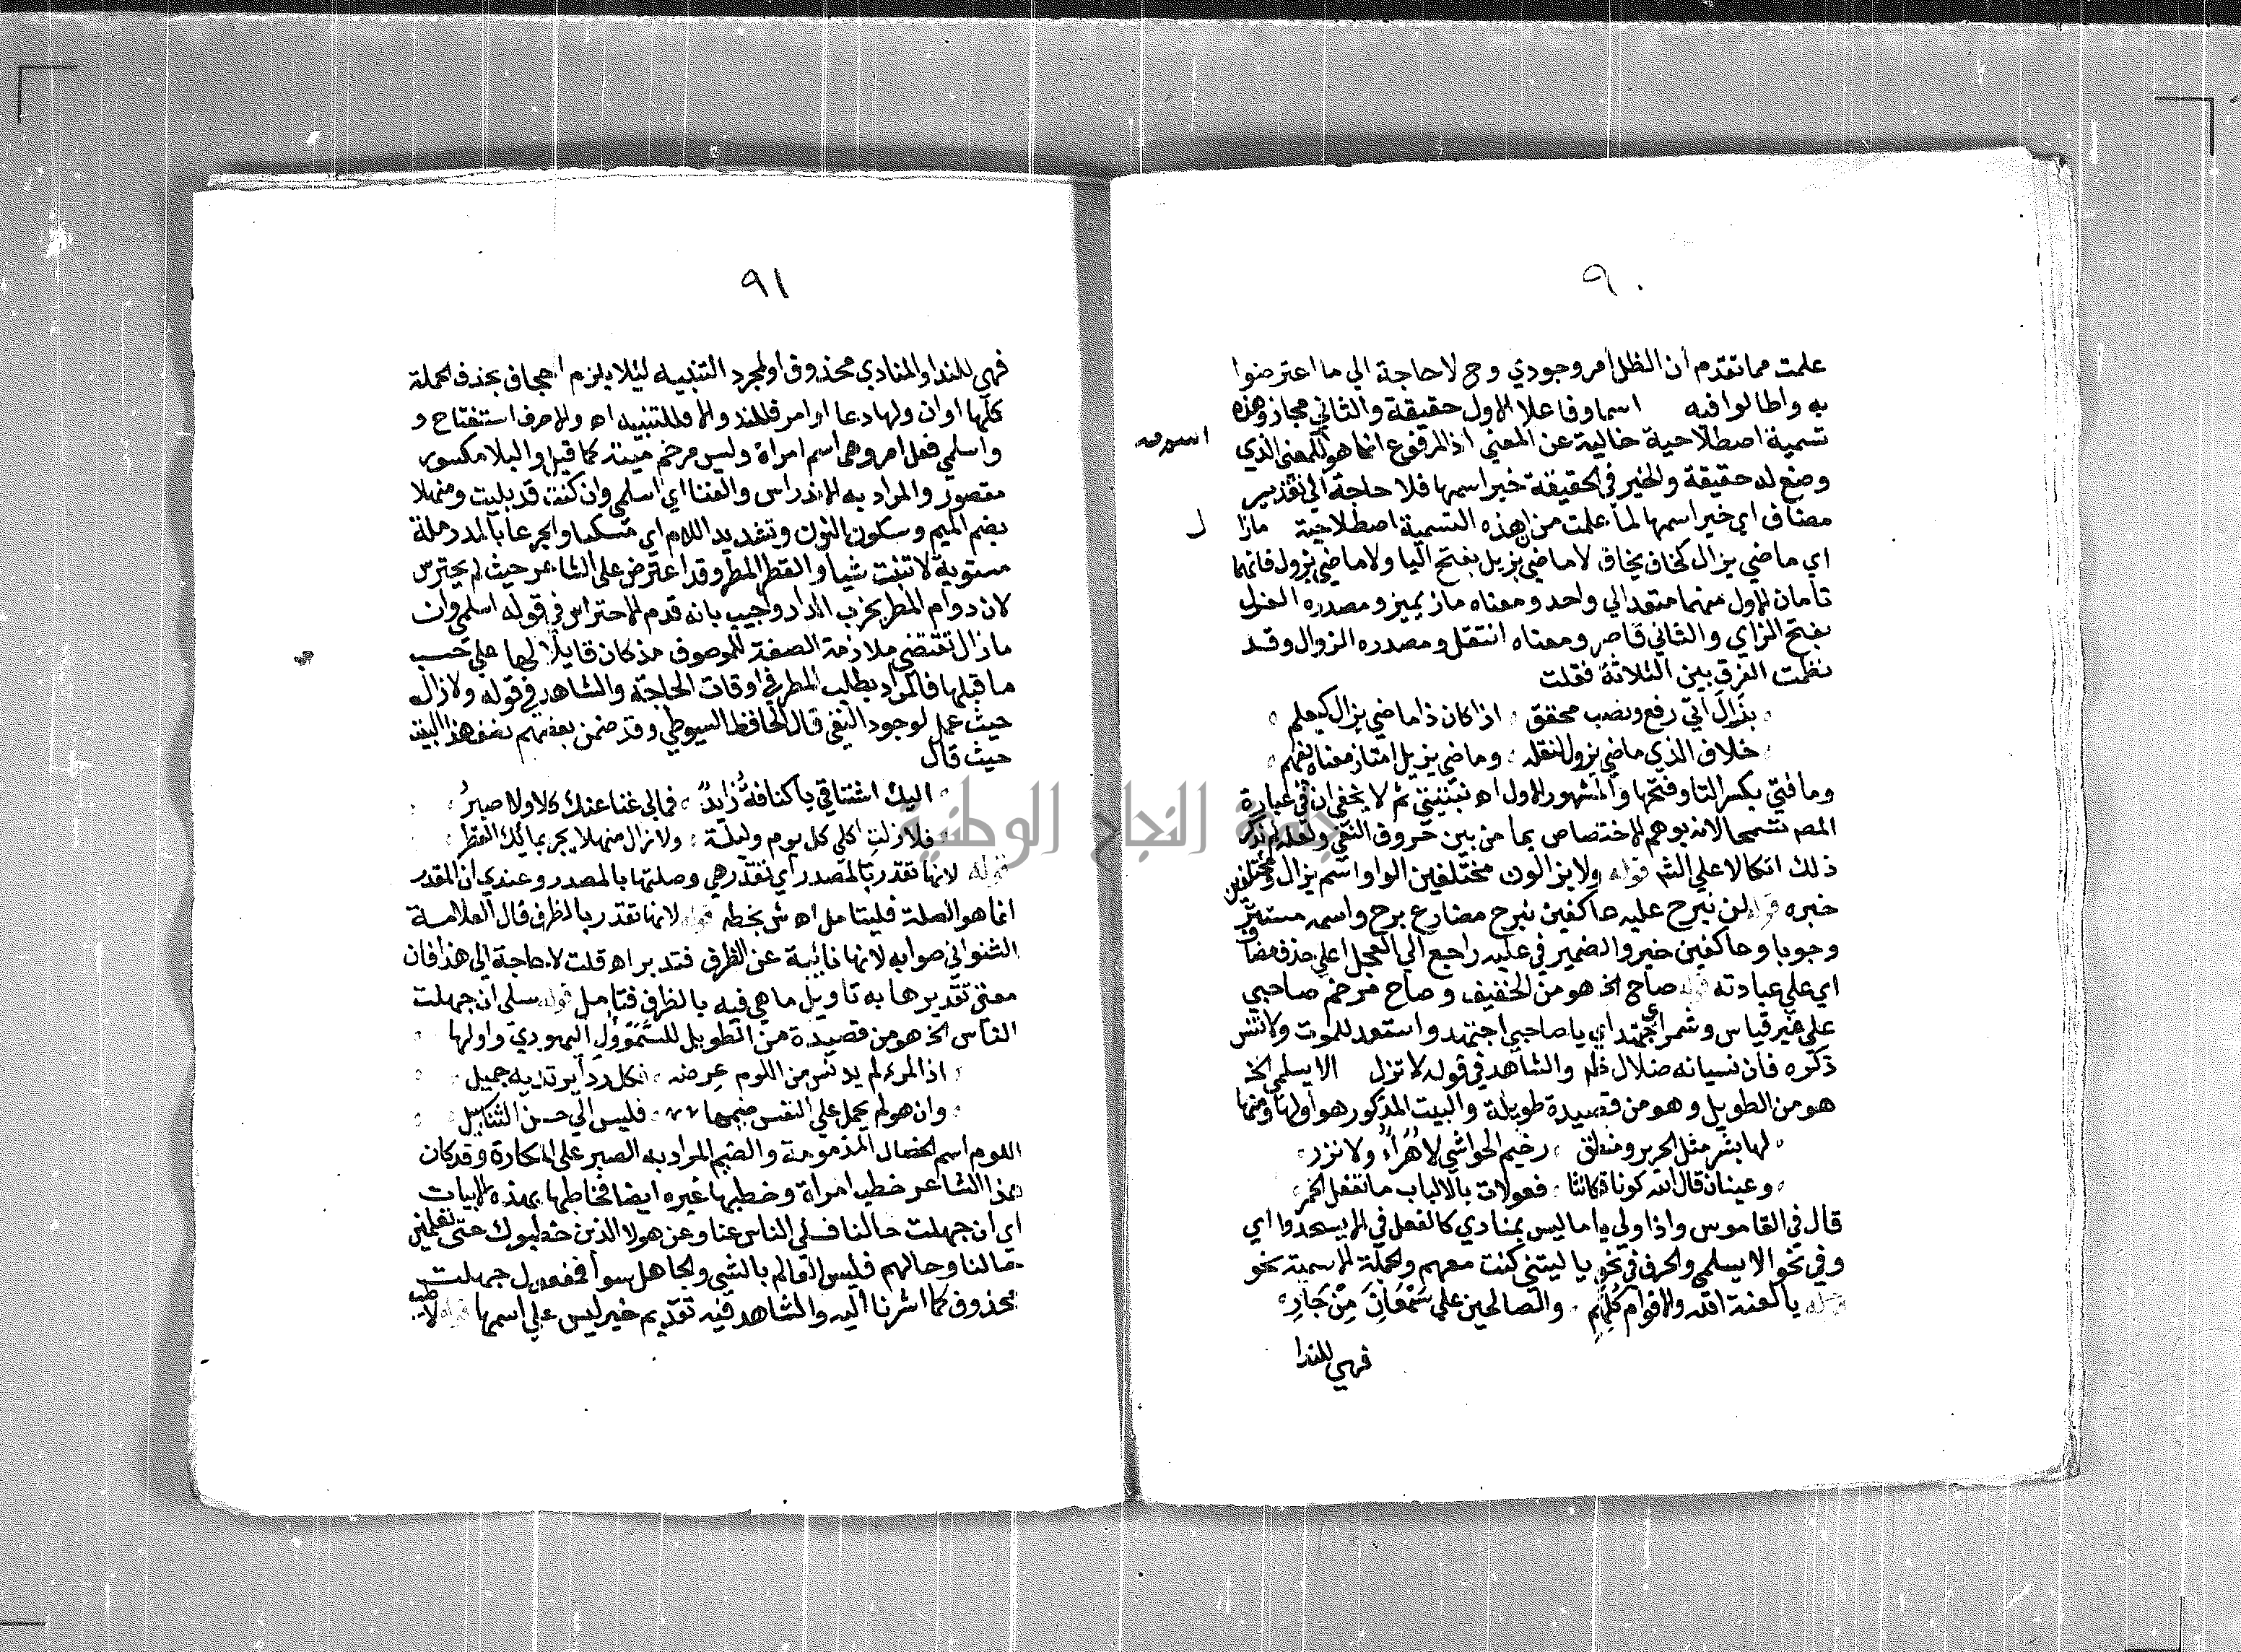 ٩٠
علمت مما تقدم أن الظل أمر وجودي وح لا حاجة الي ما اعترضوا
به واطالوا فيه اسما وفاعلا الاول حقيقة والثاني مجاز وهذه
تسمية اصطلاحية خالية عن المعني اذ المرفوع انما هو للمعني الذي
وضع له حقيقة والخبر في الحقيقة خبر اسمها فلا حاجة الي تقدير
مضاف اي خبر اسمها لما علمت من ان هذه التسمية اصطلاحية مازا
ل
اي ماضي يزال كخاف يخاف لا ماضي يزيل بفتح اليا ولا ماضي يزول فانهما
تامان الاول منهما متعد الي واحد ومعناه ماز يميز ومصدره الزيل
بفتح الزاي والثاني قاصر ومعناه انتقل ومصدره الزوال وقد
نظمت الفرق بين الثلاثة فقلت
بزال اتي رفع ونصب محقق اذا كان ذا ماضي يزال كيعلم
خلاف الذي ماضي يزول لنقله وماضي يزيل امتاز معناه يفهم
وما فتي بكسر التا وفتحها والمشهور الاول اه نبتيتي ثم لا يخفي ان في عبارة
المص تسمحا لانه يوهم الاختصاص بما من بين حروف النفي ولعله لم يذكر
ذلك اتكالا علي الشر قوله ولا يزالون مختلفين الواو اسم يزال ومختلفين
خبره قوله لن نبرح عليه عاكفين نبرح مضارع برح واسمه مستتر
وجوبا وعاكفين خبر والضمير في عليه راجع الي العجل اعلي حذف مضاف
اي علي عبادته قوله صاح الخ هو من الخفيف وصاح مرخم صاحبي
علي غير قياس وشمر اي اجتهد اي يا صاحبي اجتهد واستعد للموت ولا تنس
ذكره فان نسيانه ضلال ظاهر والشاهد في قوله لا تزل الا يسلمي الخ
هو من الطويل وهو من قصيدة طويلة والبيت المذكور هو اولها ومنها
لها بشر مثل الحرير ومنطق رخيم الحواشي لا هُرَاءٌ ولا نزر
وعينان قال الله كونا فكانتا فعولان بالالباب ما تفعل الخمر
قال في القاموس واذا ولي يا ما ليس بمنادي كالفعل في الا يسجدوا اي
وفي نحو الا يسلمي والحرف في نحو يا ليتني كنت معهم والجملة الاسمية نحو
قوله يا لعنة الله والاقوام كُلِّهِم والصالحين علي سَمْعَانَ مِنْ جَارِ
فهي للندا
٩١
فهي للندا والمنادي محذوف او لمجرد التنبيه ليلا يلزم الاجحاف بحذف الجملة
كلها او ان وليها دعا او امر فللندا والا فللتنبيه اه والا حرف استفتاح و
واسلمي فعل امر وهي اسم امراة وليس مرخم مية كما قيل والبلا مكسور
مقصور والمراد به الاندراس والفنا اي اسلمي وان كنت قد بليت ومنهلا
بضم الميم وسكون النون وتشديد اللام اي منسكبا والجرعا بالمد رملة
مستوية لا تنبت شيا والقطر المطر وقد اعترض علي الشاعر حيث لم يحترس
لان دوام المطر يخرب الدار واجيب بانه قدم الاحتراس في قوله اسلمي وان
مازال تقتضي ملازمة الصفة للموصوف مذ كان قابلا لها علي حسب
ما قبلها فالمراد بطلب المطر في اوقات الحاجة والشاهد في قوله ولا زال
حيث عمل لوجود النفي قال الحافظ السيوطي وقد ضمن بعضهم نصف هذا البيت
حيث قال
اليك اشتياقي يا كنافةُ زايدٌ فمالي غنا عنك كلا ولا صبرُ
فلا زلتِ اكلي كل يوم وليلة ولا زال منهلا بجرعائك القطر
قوله لانها تقدر بالمصدر اي تقدر هي وصلتها بالمصدر وعندي ان المقدر
انما هو الصلة فليتامل اه ش بخطه قوله لانها تقدر بالظرف قال العلامة
الشنواني صوابه لانها نائبة عن الظرف فتدبر اه قلت لا حاجة الي هذا فان
معني تقديرها به تاويل ما هي فيه بالظرف فتامل قوله سلي ان جهلت
الناس الخ هو من قصيدة من الطويل للسَّمَوْأَلِ اليهودي واولها
اذا المرء لم يدنس من اللوم عرضه فكل رداء يرتديه جميل
وان هو لم يحمل علي النفس ضيمها فليس الي حسن الثنا سبيل
اللوم اسم لخصال المذمومة والضيم المراد به الصبر علي المكارة وقد كان
هذا الشاعر خطب امراة وخطبها غيره ايضا فخاطبها بهذه الابيات
اي ان جهلت حالنا فسلي الناس عنا وعن هولا الذين خطبوك حتي تعلمين
حالنا وحالهم فليس العالم بالشي والجاهل سوا فمفعول جهلت
محذوف كما اشرنا اليه والشاهد فيه تقديم خبر ليس علي اسمها قوله لا طيب
جامعة النجاح الوطنية